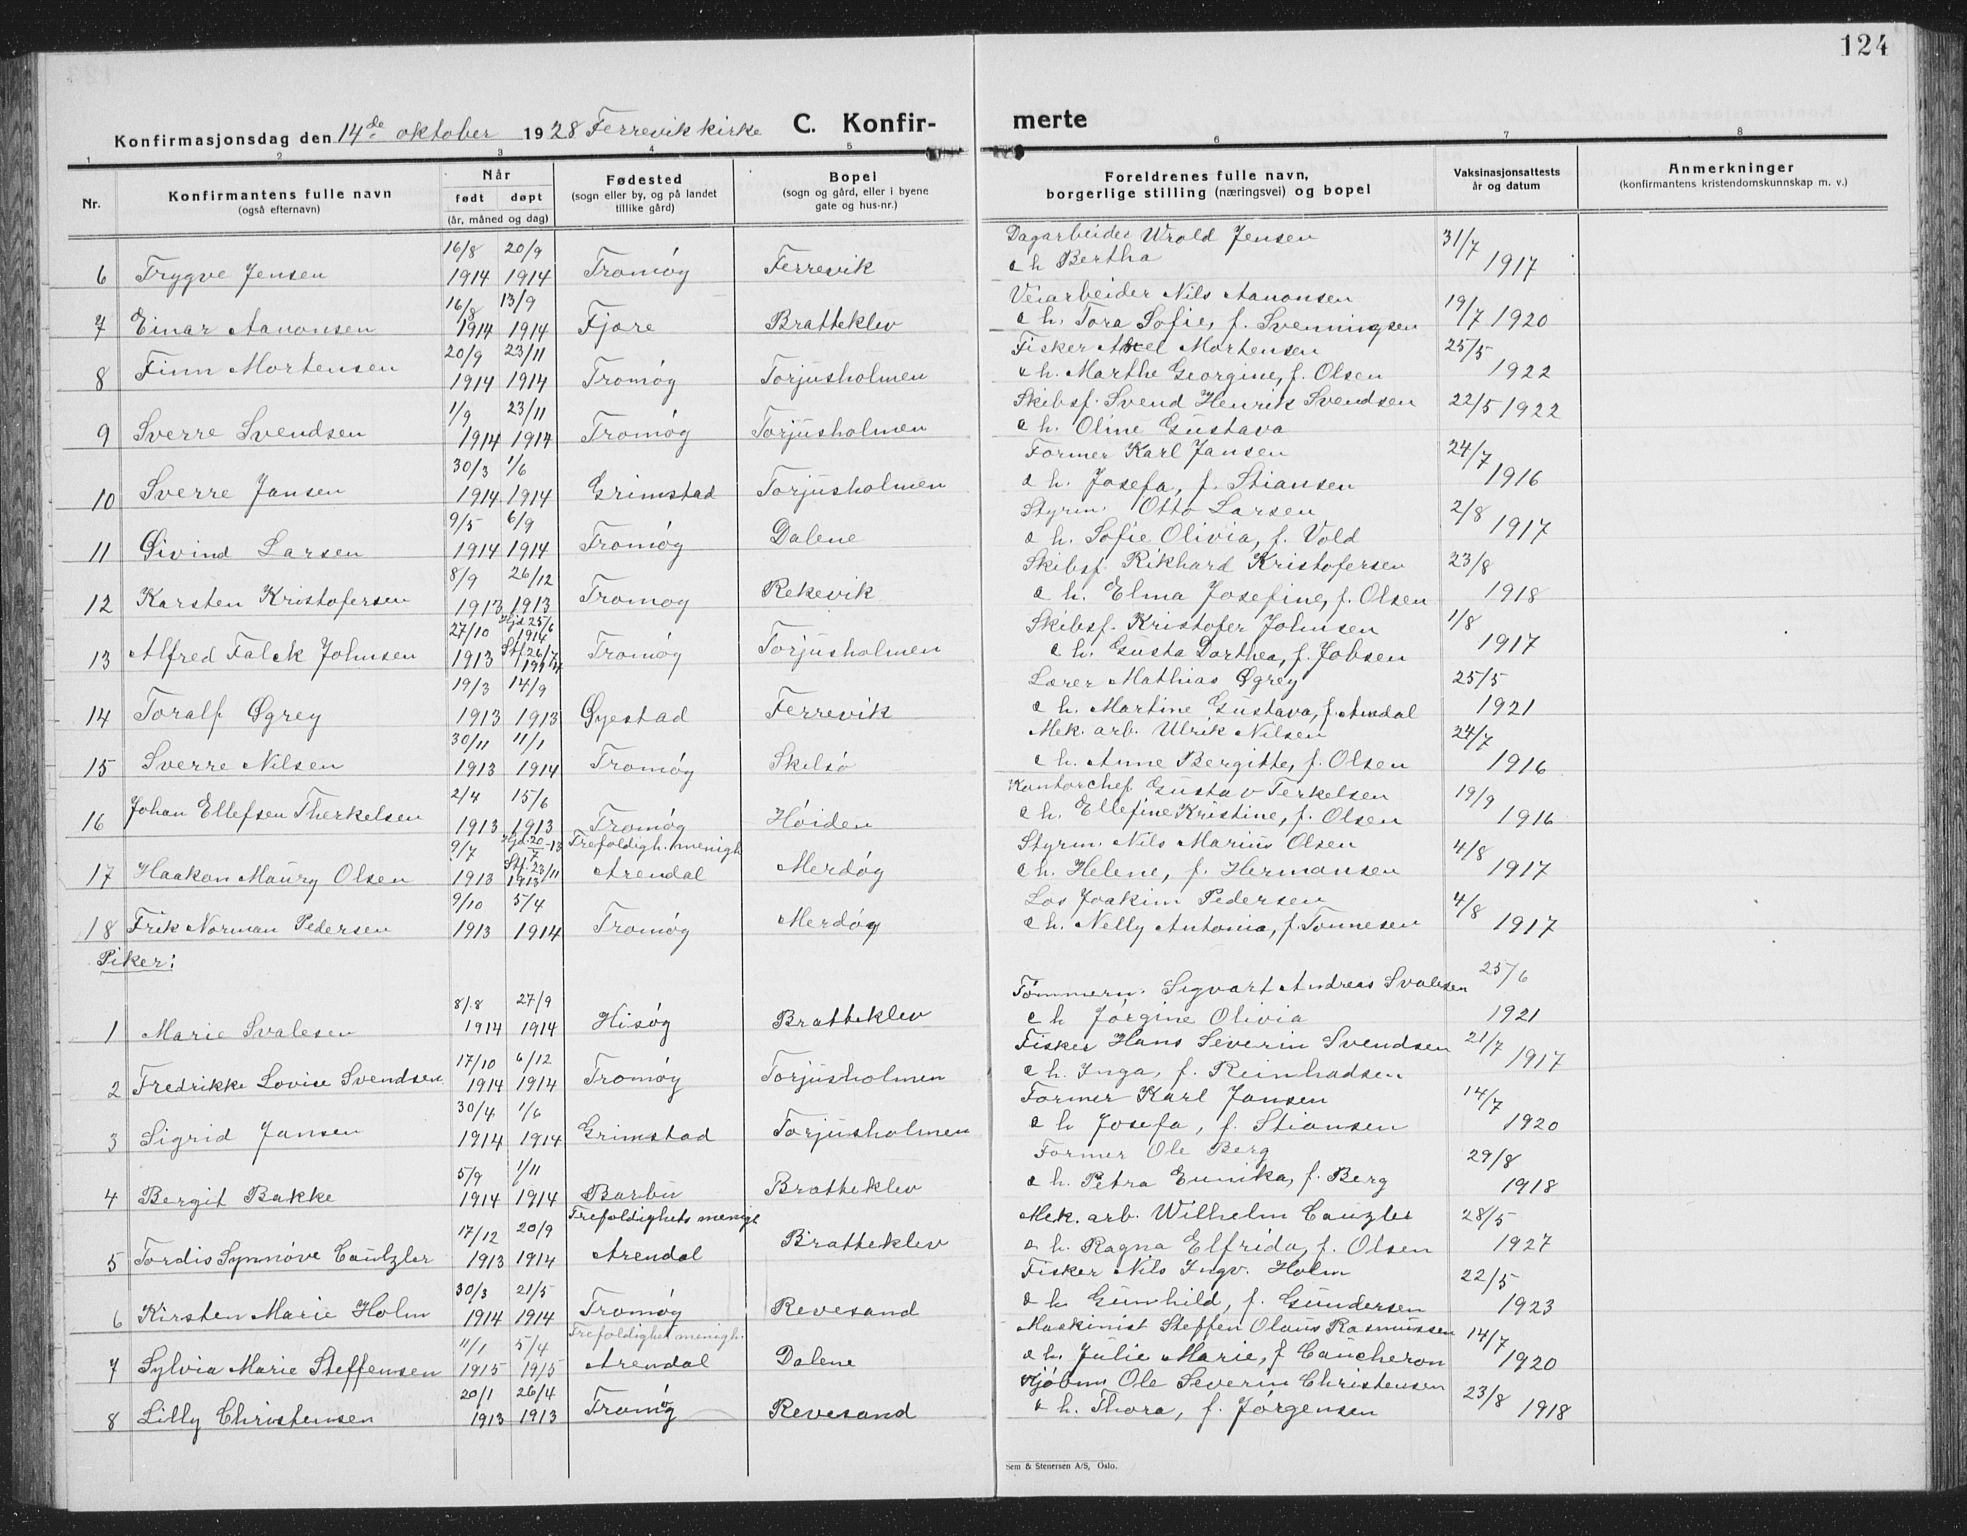 124
Konfirmasjonsdag den 14de oktober 1928 Færrevik kirke C. Konfir- merte
1 2 3 4 5 6 7 8
Nr. Konfirmantens fulle navn (også efternavn) Når født døpt (år, måned og dag) Fødested (sogn eller by, og på landet tillike gård) Bopel (sogn og gård, eller i byene gate og hus-nr.) Foreldrenes fulle navn, borgerlige stilling (næringsvei) og bopel Vaksinasjonsattests år og datum Anmerkninger (konfirmantens kristendomskunnskap m. v.)
6 Trygve Jensen 16/8 1914 20/9 1914 Tromøy Færrevik Dagarbeider Wrold Jensen o h Bertha 31/7 1917
7 Einar Aanonsen 16/8 1914 13/9 1914 Fjære Bratteklev Veiarbeider Nils Aanonsen o h. Tora Sofie, f. Svenningsen 19/7 1920
8 Finn Mortensen 20/9 1914 23/11 1914 Tromøy Torjusholmen Fisker Mortensen o h. Marthe Georgine, f. Olsen 25/5 1922
9 Sverre Svendsen 1/9 1914 23/11 1914 Tromøy Torjusholmen Skibsf. Svend Henrik Svendsen o h. Oline Gustava 22/5 1922
10 Sverre Jansen 30/3 1914 1/6 1914 Grimstad Torjusholmen Former Karl Jansen o h. Josefa, f. Stiansen 24/7 1916
11 Øivind Larsen 9/5 1914 6/9 1914 Tromøy Dalene Styrm. Otto Larsen o h. Sofie Olivia, f. Vold 2/8 1917
12 Karsten Kristofersen 8/9 1913 26/12 1913 Tromøy Rekevik Skibsf. Rikhard Kristofersen o h. Elma Josefine, f. Olsen 23/8 1918
13 Alfred Falck Johnsen 27/10 1913 Hjd. 25/6 1914 Stf. 26/7 1914 Tromøy Torjusholmen Skibsf. Kristofer Johnsen o h. Gusta Dorthea, f. Jobsen 1/8 1917
14 Toralf Øgrey 19/3 1913 14/9 1913 Øyestad Færrevik Lærer Mathias Øgrey o h. Martine Gustava, f. 25/5 1921
15 Sverre Nilsen 30/11 1913 11/1 1914 Tromøy Skilsø Mek. arb. Ulrik Nilsen o h. Anne Bergitte, f. Olsen 24/7 1916
16 Johan Ellefsen Therkelsen 2/4 1913 15/6 1913 Tromøy Høiden Kontorchef Gustav Terkelsen o h. Ellefine Kristine, f. Olsen 19/9 1916
17 Haakon Maury Olsen 9/7 1913 Hjd. 20/7-13 Stf. 23/11 1913 Trefoldigh. menigh. Arendal Merdøy Styrm. Nils Marius Olsen o h. Helene, f. Hermansen 4/8 1917
18 Frik Norman Pedersen 9/10 1913 5/4 1914 Tromøy Merdøy Los Joakim Pedersen o h. Nelly Antonia, f. Tønnesen 4/8 1917
Piker:
1 Marie Svalesen 8/8 1914 27/9 1914 Hisøy Bratteklev Tømmerm. Sigvart Andreas Svalesen o h Jørgine Olivia 25/6 1921
2 Fredrikke Lovise Svendsen 17/10 1914 6/12 1914 Tromøy Torjusholmen Fisker Hans Severin Svendsen o h. Inga, f. Reinhadsen 21/7 1917
3 Sigrid Jansen 30/4 1914 1/6 1914 Grimstad Torjusholmen Former Karl Jansen o h Josefa, f. Stiansen 14/7 1920
4 Bergit Bakke 5/9 1914 1/11 1914 Barbu Bratteklev Former Ole Berg o h. Petra Eunika, f. Berg 29/8 1918
5 Tordis Synnøve Cantzler 17/12 1913 20/9 1914 Trefoldighets menigh Arendal Bratteklev Mek. arb. Wilhelm Canzler o h. Ragna Elfrida, f. Olsen 28/5 1927
6 Kirsten Marie Holm 30/3 1914 21/5 1914 Tromøy Revesand Fisker Nils Ingv. Holm o h. Gunhild, f. Gundersen 22/5 1923
7 Sylvia Marie Steffensen 11/1 1915 5/4 1915 Trefoldighet menigh. Arendal Dalene Maskinist Steffen Olaus Rasmussen o h. Julie Marie, f Caucheron 14/7 1920
8 Lilly Christensen 20/1 1913 26/4 1913 Tromøy Revesand Ole Severin Christensen o h. Thora, f. Jørgensen 23/8 1918
Sem & Stenersen A/S, Oslo.